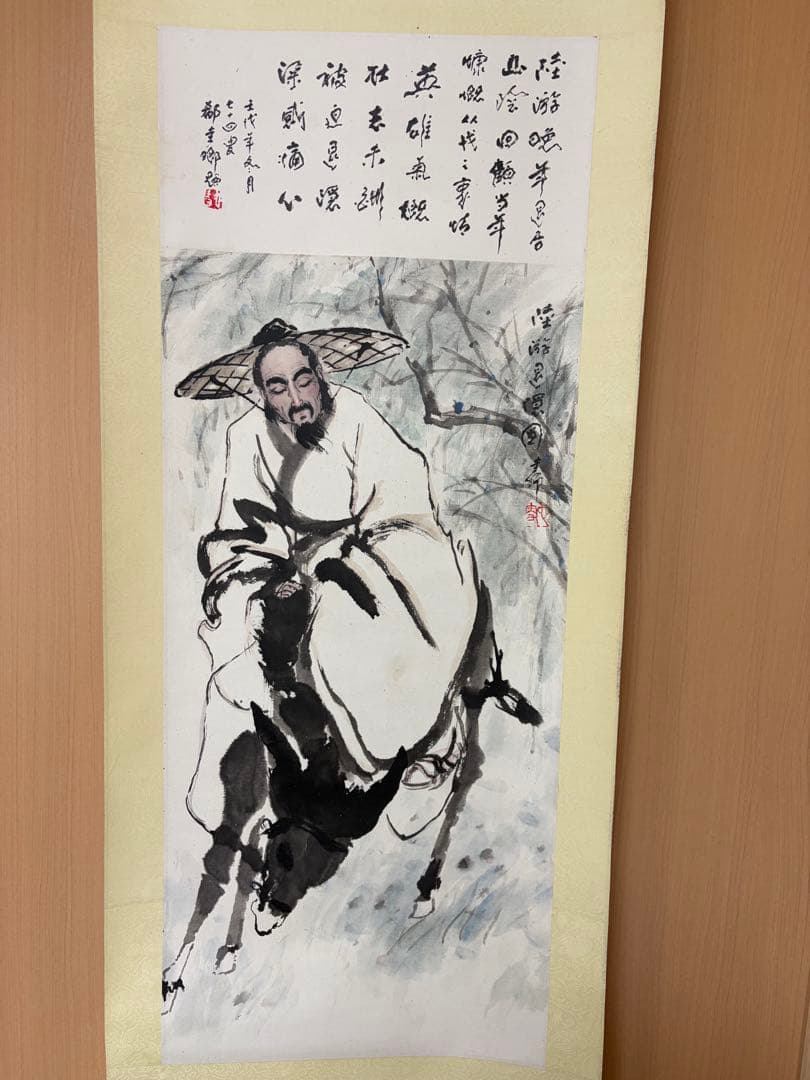 陸游晚年退居
山陰回顧当年
慷慨从戎之事情
英雄氣概
壯志未酬
被迫退還
深感痛心
壬戌年冬月
七十四叟
陸游退還圖